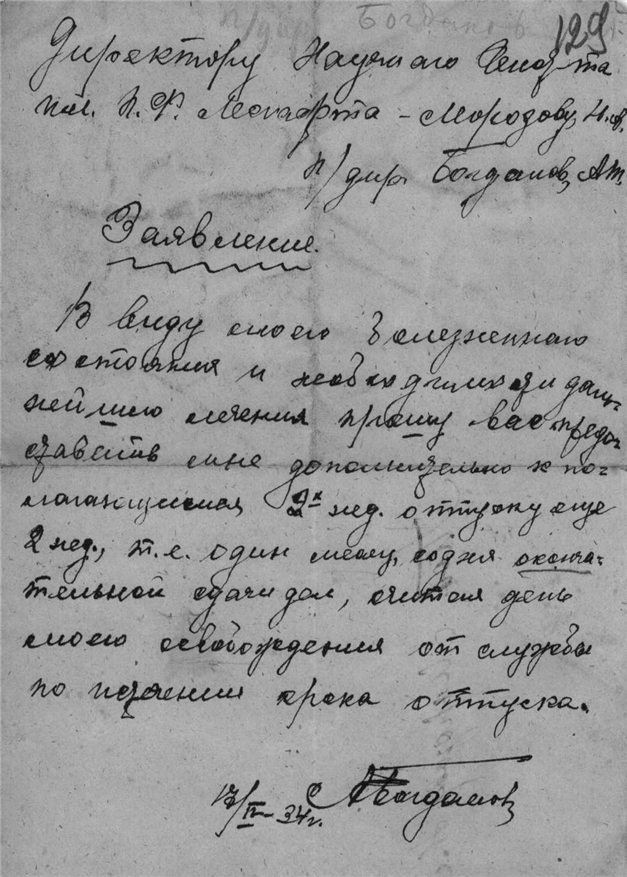 129
Директору Научного Инст-та
им. П.Ф. Лесгафта – Морозову, Н.А.
п/дир. Богданов, А.Т.
Заявление.
В виду моего болезненного
состояния и необходимости даль-
нейшего лечения прошу вас предо-
ставить мне дополнительно к по-
лагающемуся 2х нед. отпуску еще
2 нед., т.е. один месяц, со дня оконча-
тельной сдачи дел, считая день
моего освобождения от службы
по истечении срока отпуска.
34г.
АБогданов